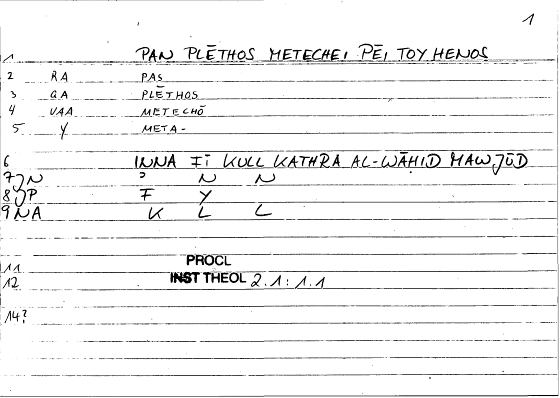 1
1 PAN PLĒTHOS METECHEI PĒI TOY HENOS
2 RA PAS
3 GA PLĒTHOS
4 VAA METECHŌ
5 Y META-
6 INNA FĪ KULL KATHRA AL-WĀHID MAWJŪD
7 JN ' N N
8 JP F Y
9 NA K L L
PROCL
11
12 INST THEOL 2.1: 1.1
14?